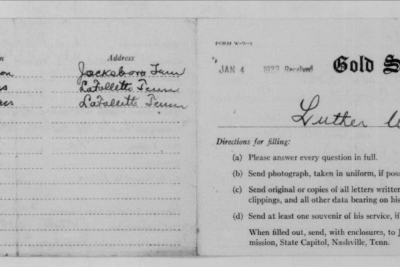 Address
Jacksboro Tenn
LaFollette Tenn
LaFollette Tenn
JAN 4 Received
Gold S
Luther
Directions for filling:
(a) Please answer every question in full.
(b) Send photograph, taken in uniform, if poss
(c) Send original or copies of all letters written
clippings, and all other data bearing on his
(d) Send at least one souvenir of his service, if
When filled out, send, with enclosures, to J
mission, State Capitol, Nashville, Tenn.